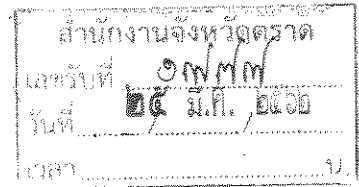 สำนักงานจังหวัดตราด
เลขรับที่ ๑๗๗๗
วันที่ ๒๕ มี.ค. ๒๕๖๒
เวลา น.